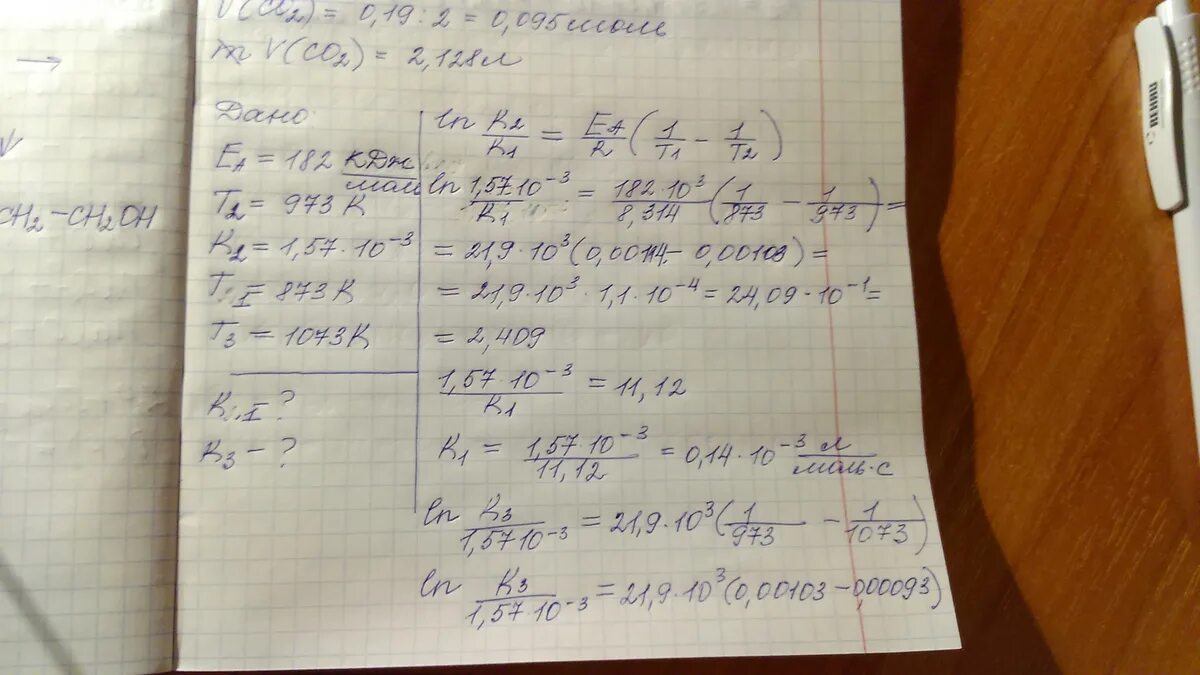 V(CO₂) = 0,19 : 2 = 0,095 моль
V(CO₂) = 2,128 л
→
V
CH₂ – CH₂OH
Дано:
E_A = 182 кДж/моль
T₂ = 973 К
K₂ = 1,57 · 10⁻³
T_I = 873 К
T₃ = 1073 К
K_I ?
K₃ – ?
ln K₂/K₁ = E_A/R (1/T₁ – 1/T₂)
ln 1,57 10⁻³/K₁ = 182 · 10³/8,314 (1/873 – 1/973) =
= 21,9 · 10³ (0,00114 – 0,00103) =
= 21,9 · 10³ · 1,1 · 10⁻⁴ = 24,09 · 10⁻¹ =
= 2,409
1,57 · 10⁻³/K₁ = 11,12
K₁ = 1,57 · 10⁻³/11,12 = 0,14 · 10⁻³ л/моль·с
ln K₃/1,57 10⁻³ = 21,9 · 10³ (1/973 – 1/1073)
ln K₃/1,57 · 10⁻³ = 21,9 · 10³ (0,00103 – 0,00093)